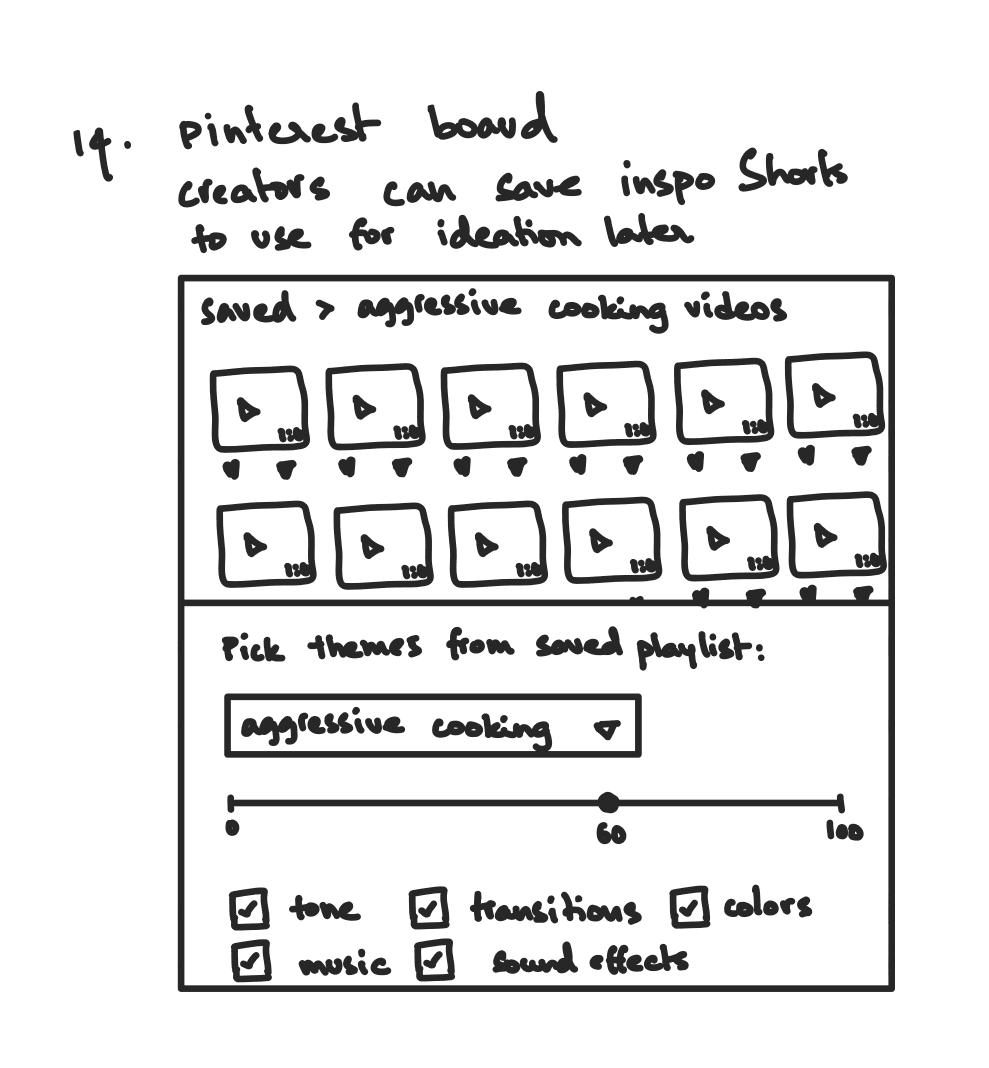 14. pinterest board
creators can save inspo Shorts
to use for ideation later
saved > aggressive cooking videos
Pick themes from saved playlist:
aggressive cooking
0 60 100
tone transitions colors
music sound effects